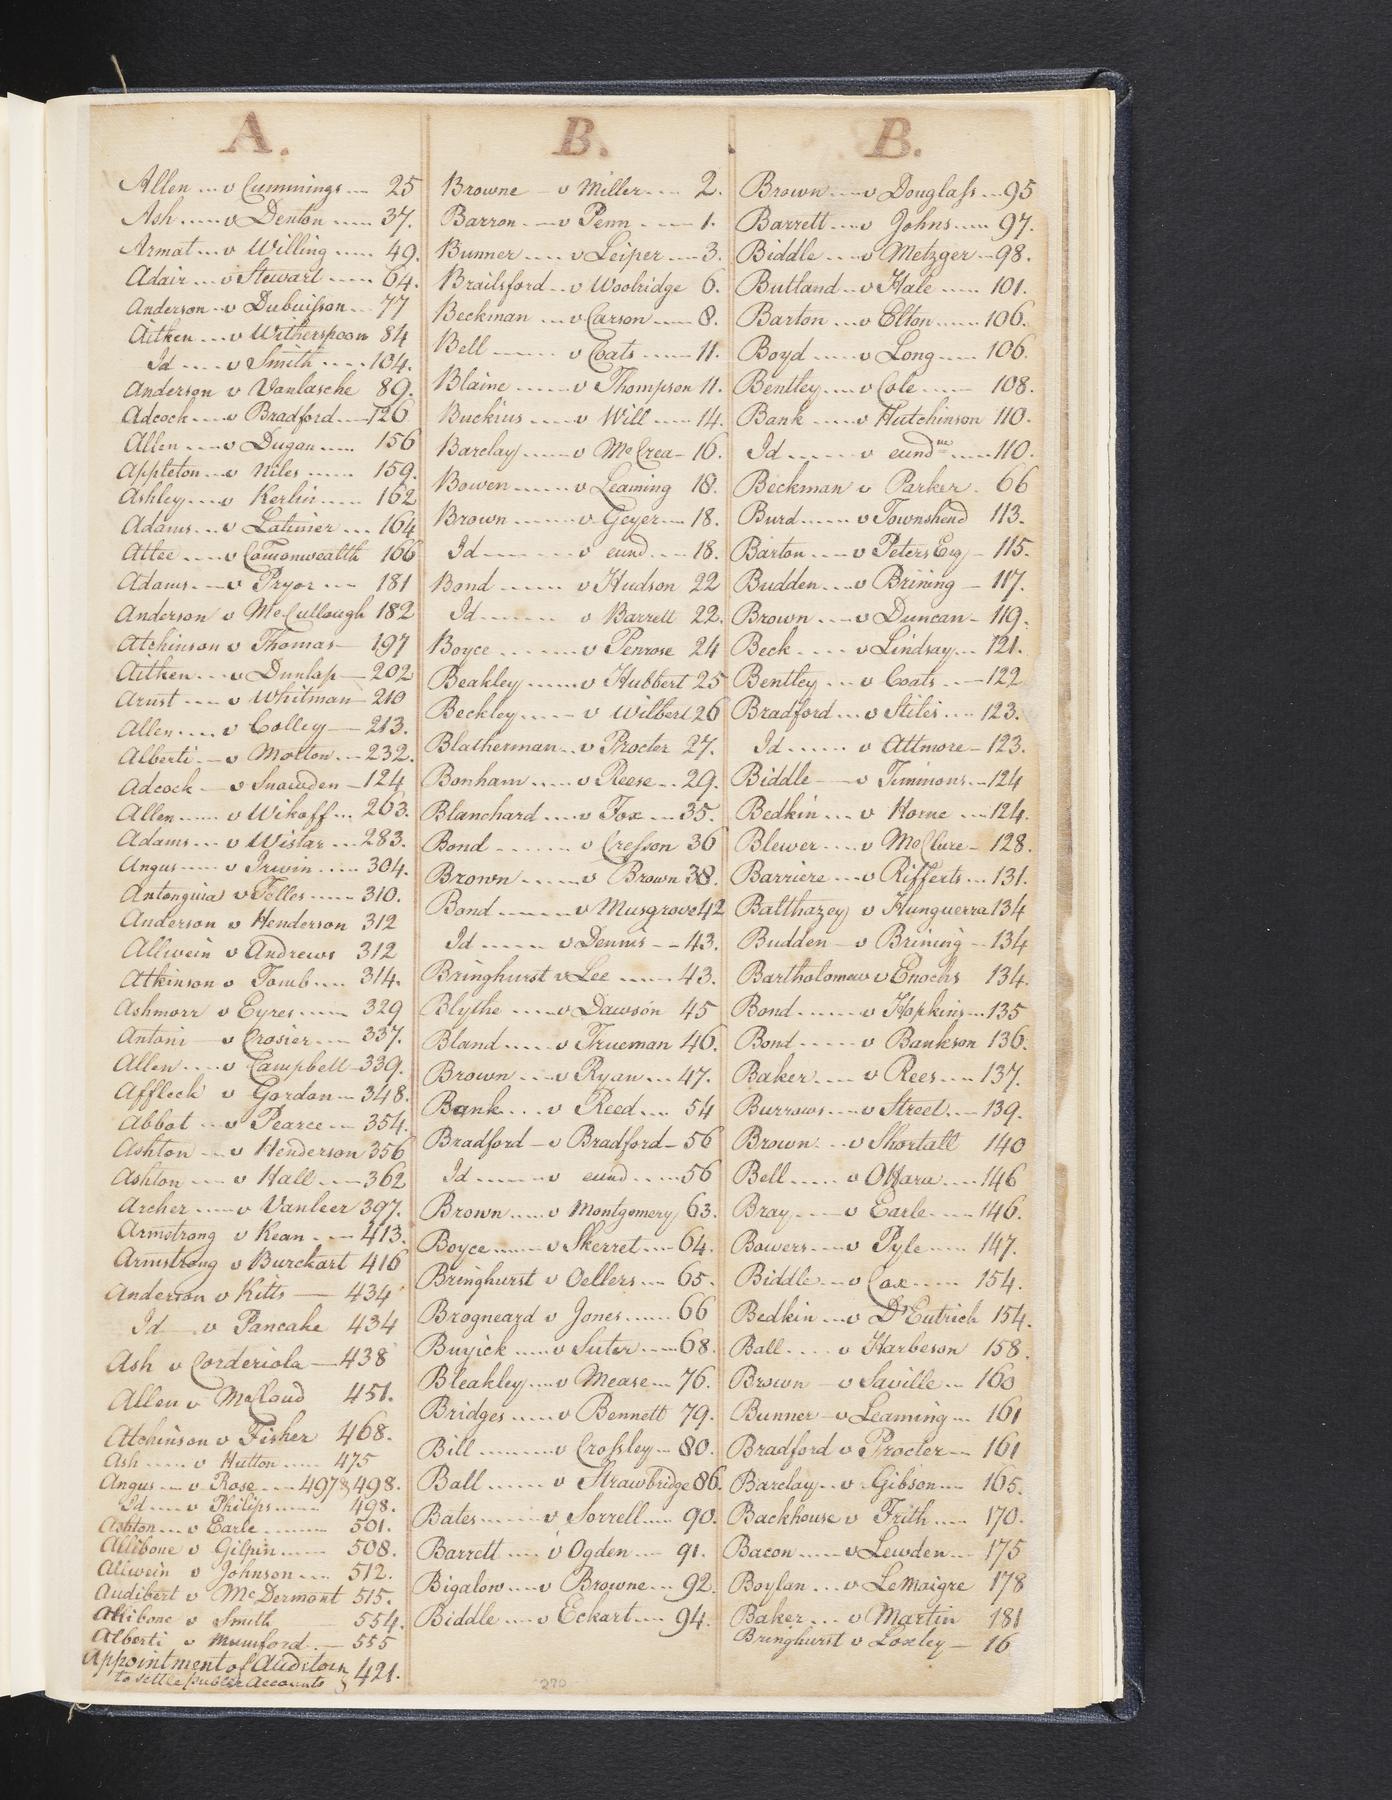 A.
Allen ... v Cummings ... 25
Ash ..... v Denton ..... 37.
Armat ... v Willing ..... 49.
Adair ... v Steward ..... 64.
Anderson .. v Dubuisson ... 77
Aitken ... v Witherspoon 84
Id .... v Smith ..... 104.
Anderson v Vanlasche 89.
Adcock .... v Bradford .... 126
Allen .... v Dugan ..... 156
Appleton ... v Niles ...... 159.
Ashley .... v Kerlin ...... 162
Adams ... v Latimer ... 164
Atlee .... v Comonwealth 166
Adams .... v Pryor .... 181
Anderson v McCullough 182
Atchinson v Thomas — 197
Aitken .... v Dunlap — 202
Arust .... v Whitman — 210
Allen .... v Colley — 213.
Alberti .... v Morton ... 232.
Adcock — v Snowden — 124
Allen ...... v Wikoff ... 263.
Adams ... v Wistar ... 283.
Angus ..... v Irwin ..... 304.
Antonguia v Telles ...... 310.
Anderson v Henderson 312
Allwein v Andrews 312
Atkinson v Tomb .... 314.
Ashmorr v Eyres ...... 329
Antoni — v Crosier .... 337.
Allen .... v Campbell — 339.
Affleck v Gordon ... 348.
Abbot ... v Pearce ... 354.
Ashton ... v Henderson 356
Ashton .... v Hall .... 362
Archer ..... v Vanleer 397.
Armstrong v Kean .... 413.
Armstrong v Burckart 416
Anderson v Kitts — 434
Id — v Pancake 434
Ash v Corderiola — 438
Allen v McCloud 451.
Atchinson v Fisher 468.
Ash ..... v Hutton ..... 475
Angus ... v Rose .... 497 & 498.
Id .... v Philips ...... 498.
Ashton ... v Earle ........ 501.
Allibone v Gilpin ...... 508.
Allwein v Johnson .... 512.
Audibert v McDermont 515.
Allibone v Smith 554.
Alberti v Mumford .. — 555
Appointment of Auditors
to settle public Accounts } 421.
B.
Browne — v Miller .... 2.
Barron .... v Penn ..... 1.
Bunner .... v Leiper .... 3.
Brailsford .. v Woolridge 6.
Beckman ... v Carson ..... 8.
Bell ....... v Coats ...... 11.
Blaine ...... v Thompson 11.
Buckius ..... v Will ..... 14.
Barclay ..... v McCrea — 16.
Bowen ...... v Leaming 18.
Brown ....... v Geyer .... 18.
Id ....... v eund .... 18.
Bond ....... v Hudson 22
Id ....... v Barrett 22.
Boyce ....... v Penrose 24
Beakley ...... v Hubbert 25
Beckley ..... v Wilbert 26
Blatherman .. v Procter 27.
Bonham ..... v Reese ... 29.
Blanchard .... v Fox .... 35.
Bond ........ v Cresson 36
Brown ...... v Brown 38.
Bond ....... v Musgrove 42
Id ...... v Dennis — 43.
Bringhurst v Lee ...... 43.
Blythe ..... v Dawson 45
Bland ..... v Trueman 46.
Brown .... v Ryan .... 47.
Bank .... v Reed .... 54
Bradford — v Bradford — 56
Id ....... v eund ..... 56
Brown ..... v Montgomery 63.
Boyce ...... v Skerret .... 64.
Bringhurst v Oellers .... 65.
Brogneard v Jones ...... 66
Buyick ..... v Suter ..... 68.
Bleakley .... v Mease ... 76.
Bridges ..... v Bennett 79.
Bill ......... v Crossley ... 80.
Ball ...... v Strawbridge 86.
Bates ....... v Sorrell ..... 90.
Barrett .... v Ogden .... 91.
Bigalow .... v Browne ... 92.
Biddle .... v Eckart .... 94.
B.
Brown .... v Douglass ... 95
Barrett .... v Johns ..... 97.
Biddle .... v Metzger — 98.
Butland ... v Hale ..... 101.
Barton .... v Elton ...... 106.
Boyd ..... v Long ..... 106.
Bentley .... v Cole ...... 108.
Bank ..... v Hutchinson 110.
Id ....... v eundm ..... 110.
Beckman v Parker . 66
Burd ...... v Townshend 113.
Barton .... v Peters Esq — 115.
Budden .... v Brining — 117.
Brown .... v Duncan — 119.
Beck ..... v Lindsay ... 121.
Bentley ... v Coats .... 122
Bradford ... v Stiles .... 123.
Id ...... v Attmore — 123.
Biddle — v Timmons ... 124
Bedkin ... v Horne .... 124.
Blewer .... v McClure — 128.
Barriere .... v Rifferts ... 131.
Balthazey v Hunguerra 134
Budden — v Brining — 134
Bartholomew v Enochs 134.
Bond ....... v Hopkins ... 135
Bond ...... v Bankson 136.
Baker .... v Rees .... 137.
Burrows .... v Street .... 139.
Brown .... v Shortall 140
Bell ..... v OHara .... 146
Bray ..... v Earle ..... 146.
Bowers .... v Pyle ..... 147.
Biddle .... v Cox ...... 154.
Bedkin .... v D'Eutrich 154.
Ball ..... v Harbeson 158.
Brown — v Saville ... 160
Bunner — v Leaming ... 161
Bradford v Procter — 161
Barclay ... v Gibson .... 165.
Backhouse v Frith ..... 170.
Bacon ..... v Lewden ... 175
Boylan .... v LeMaigre 178
Baker .... v Martin 181
Bringhurst v Loxley — 16
270